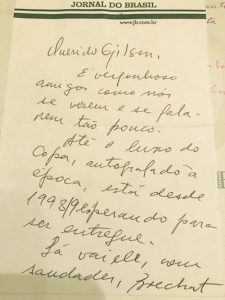 JORNAL DO BRASIL
www.jb.com.br
Querido Gilson,
É vergonhoso
amigos como nós
se verem e se fala-
rem tão pouco.
Até o livro do
Copa, autografado à
época, está desde
1998/9 esperando para
ser entregue.
Já vai ele, com
saudades,